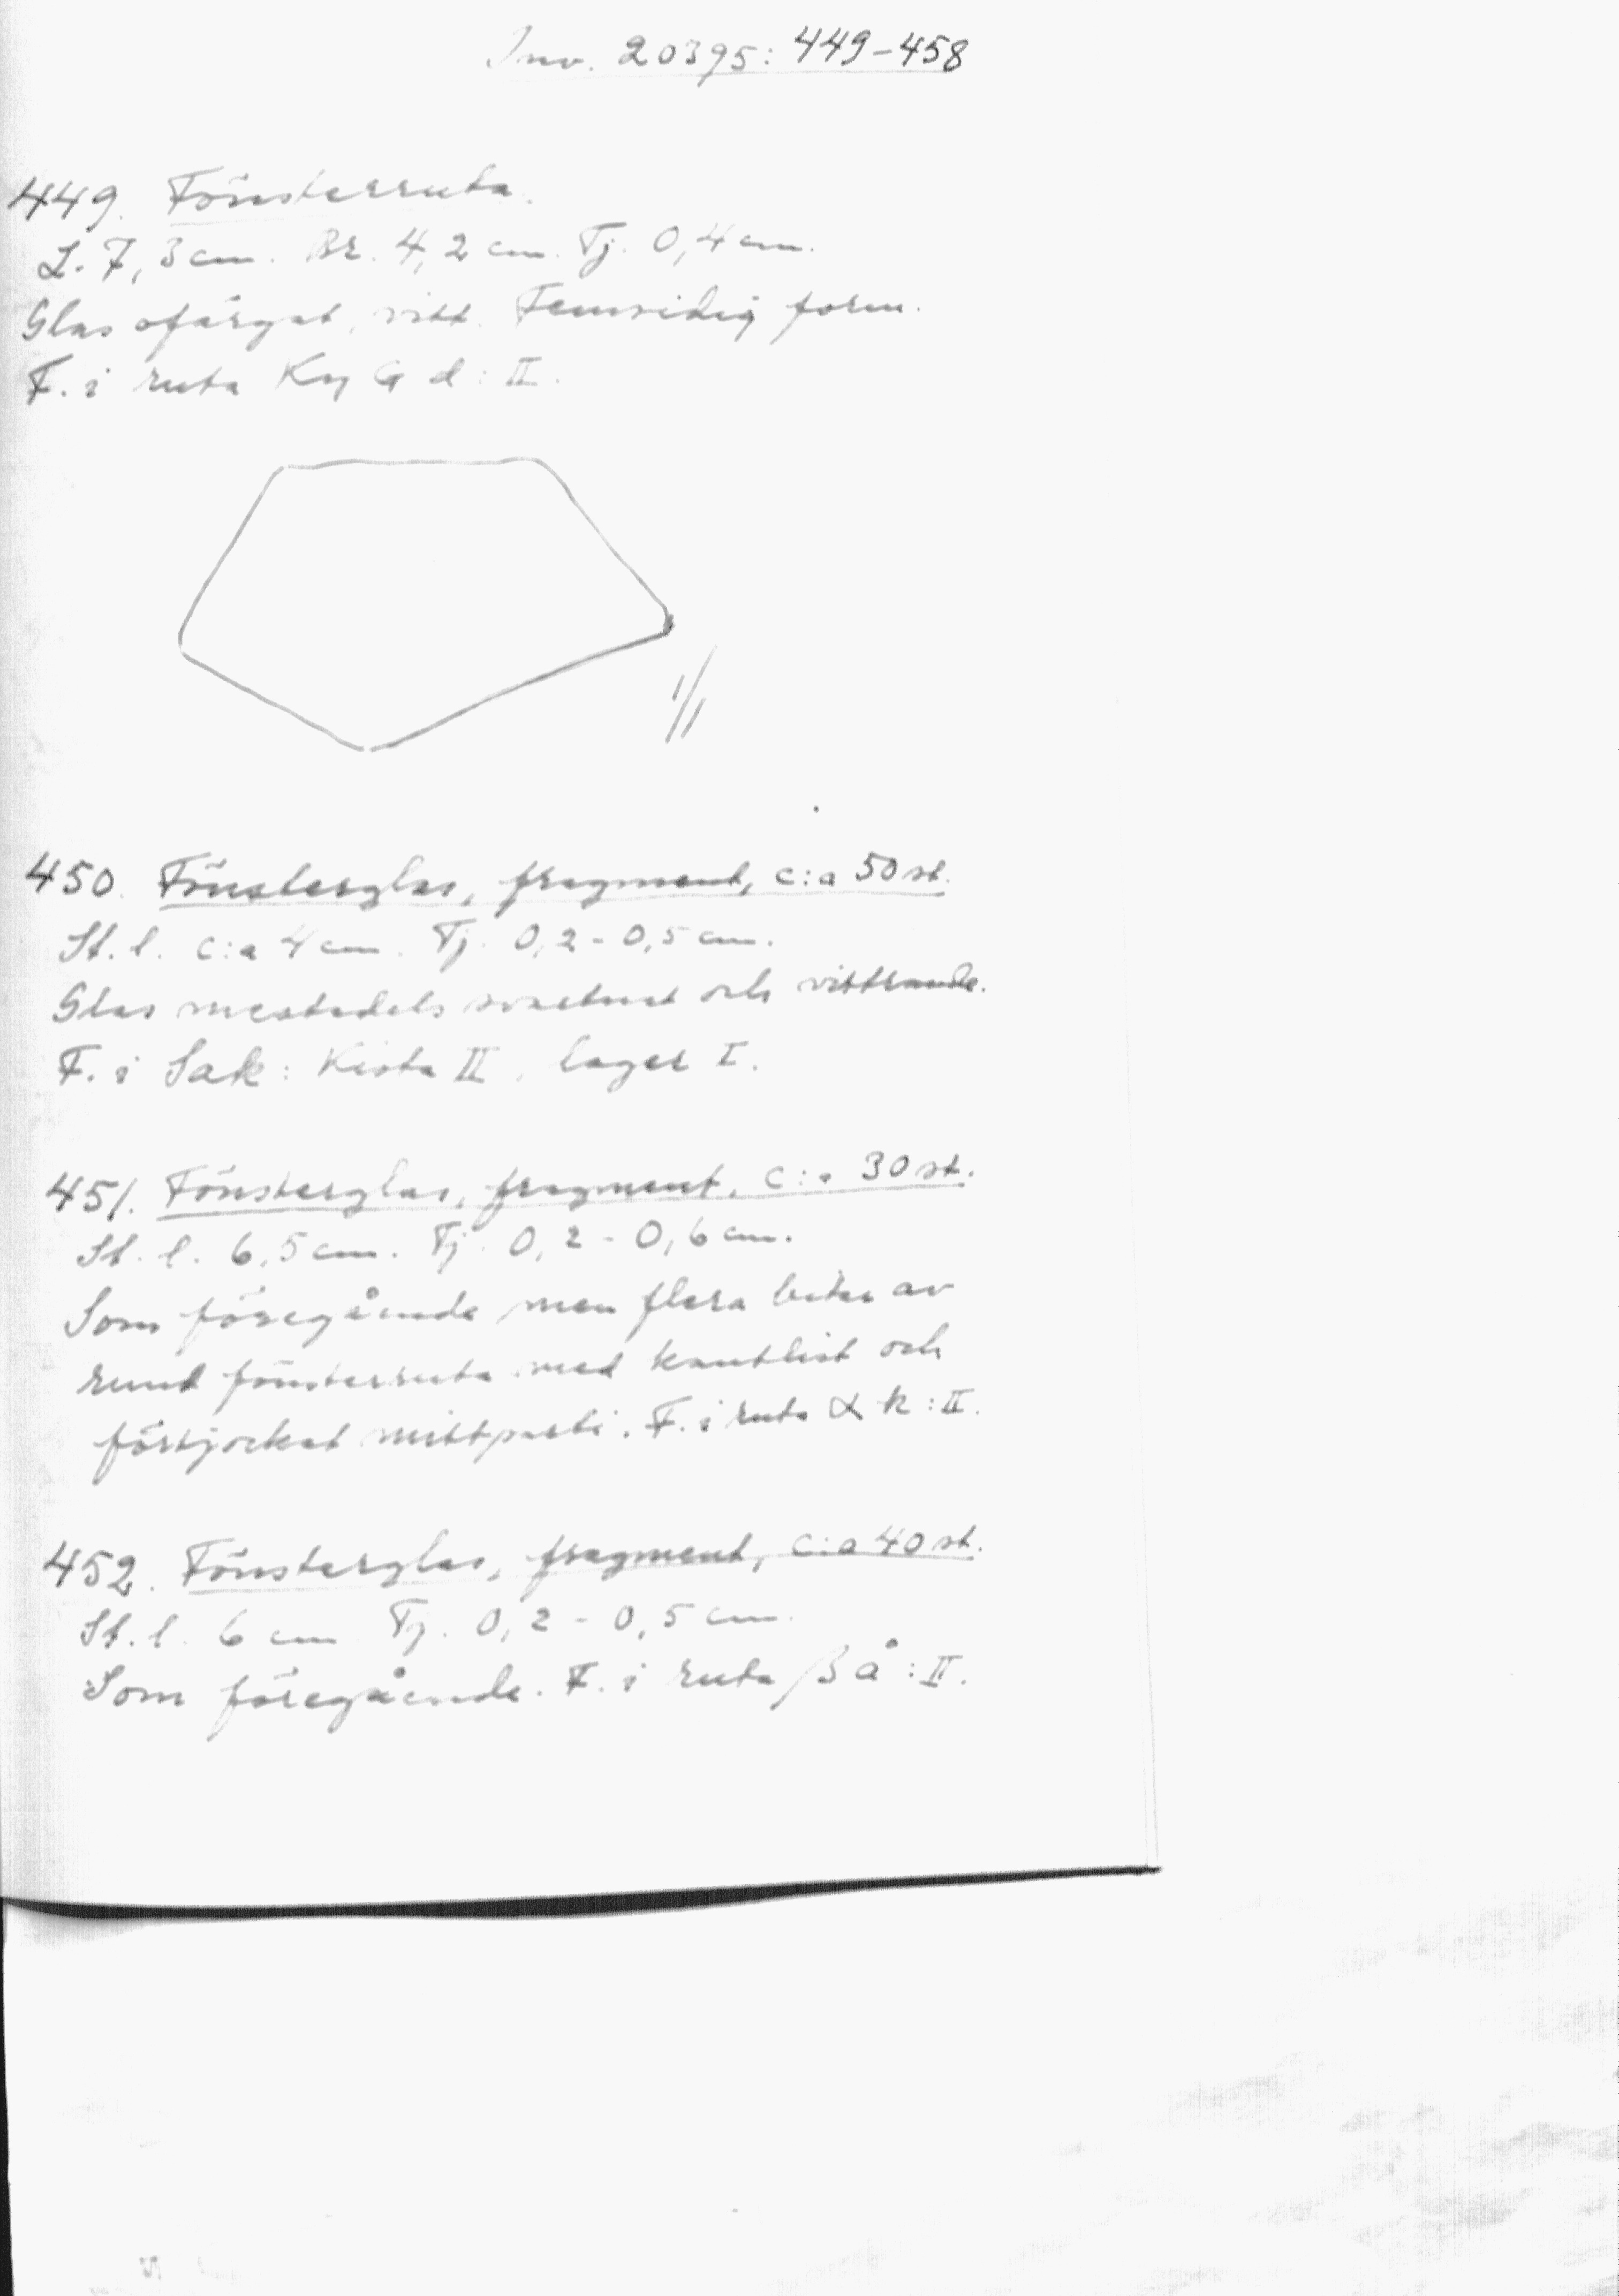 Inv. 20395: 449-458
449. Fönsterruta.
L. 7,3 cm. Br. 4,2 cm. Tj. 0,4 cm.
Glas ofärgat, vitt. Femsidig form.
F. i ruta Ky G d : II.
1/1
450. Fönsterglas, fragment, c:a 50 st.
St. l. c:a 4 cm. Tj. 0,2 - 0,5 cm.
Glas mestadels svartnat och vittrande.
F. i Sak: Kista II, lager I.
451. Fönsterglas, fragment, c:a 30 st.
St. l. 6,5 cm. Tj. 0,2 - 0,6 cm.
Som föregående men flera bitar av
rund fönsterruta med kantlist och
förtjockat mittparti. F. i ruta α k : II.
452. Fönsterglas, fragment, c:a 40 st.
St. l. 6 cm Tj. 0,2 - 0,5 cm.
Som föregående. F. i ruta β å : II.